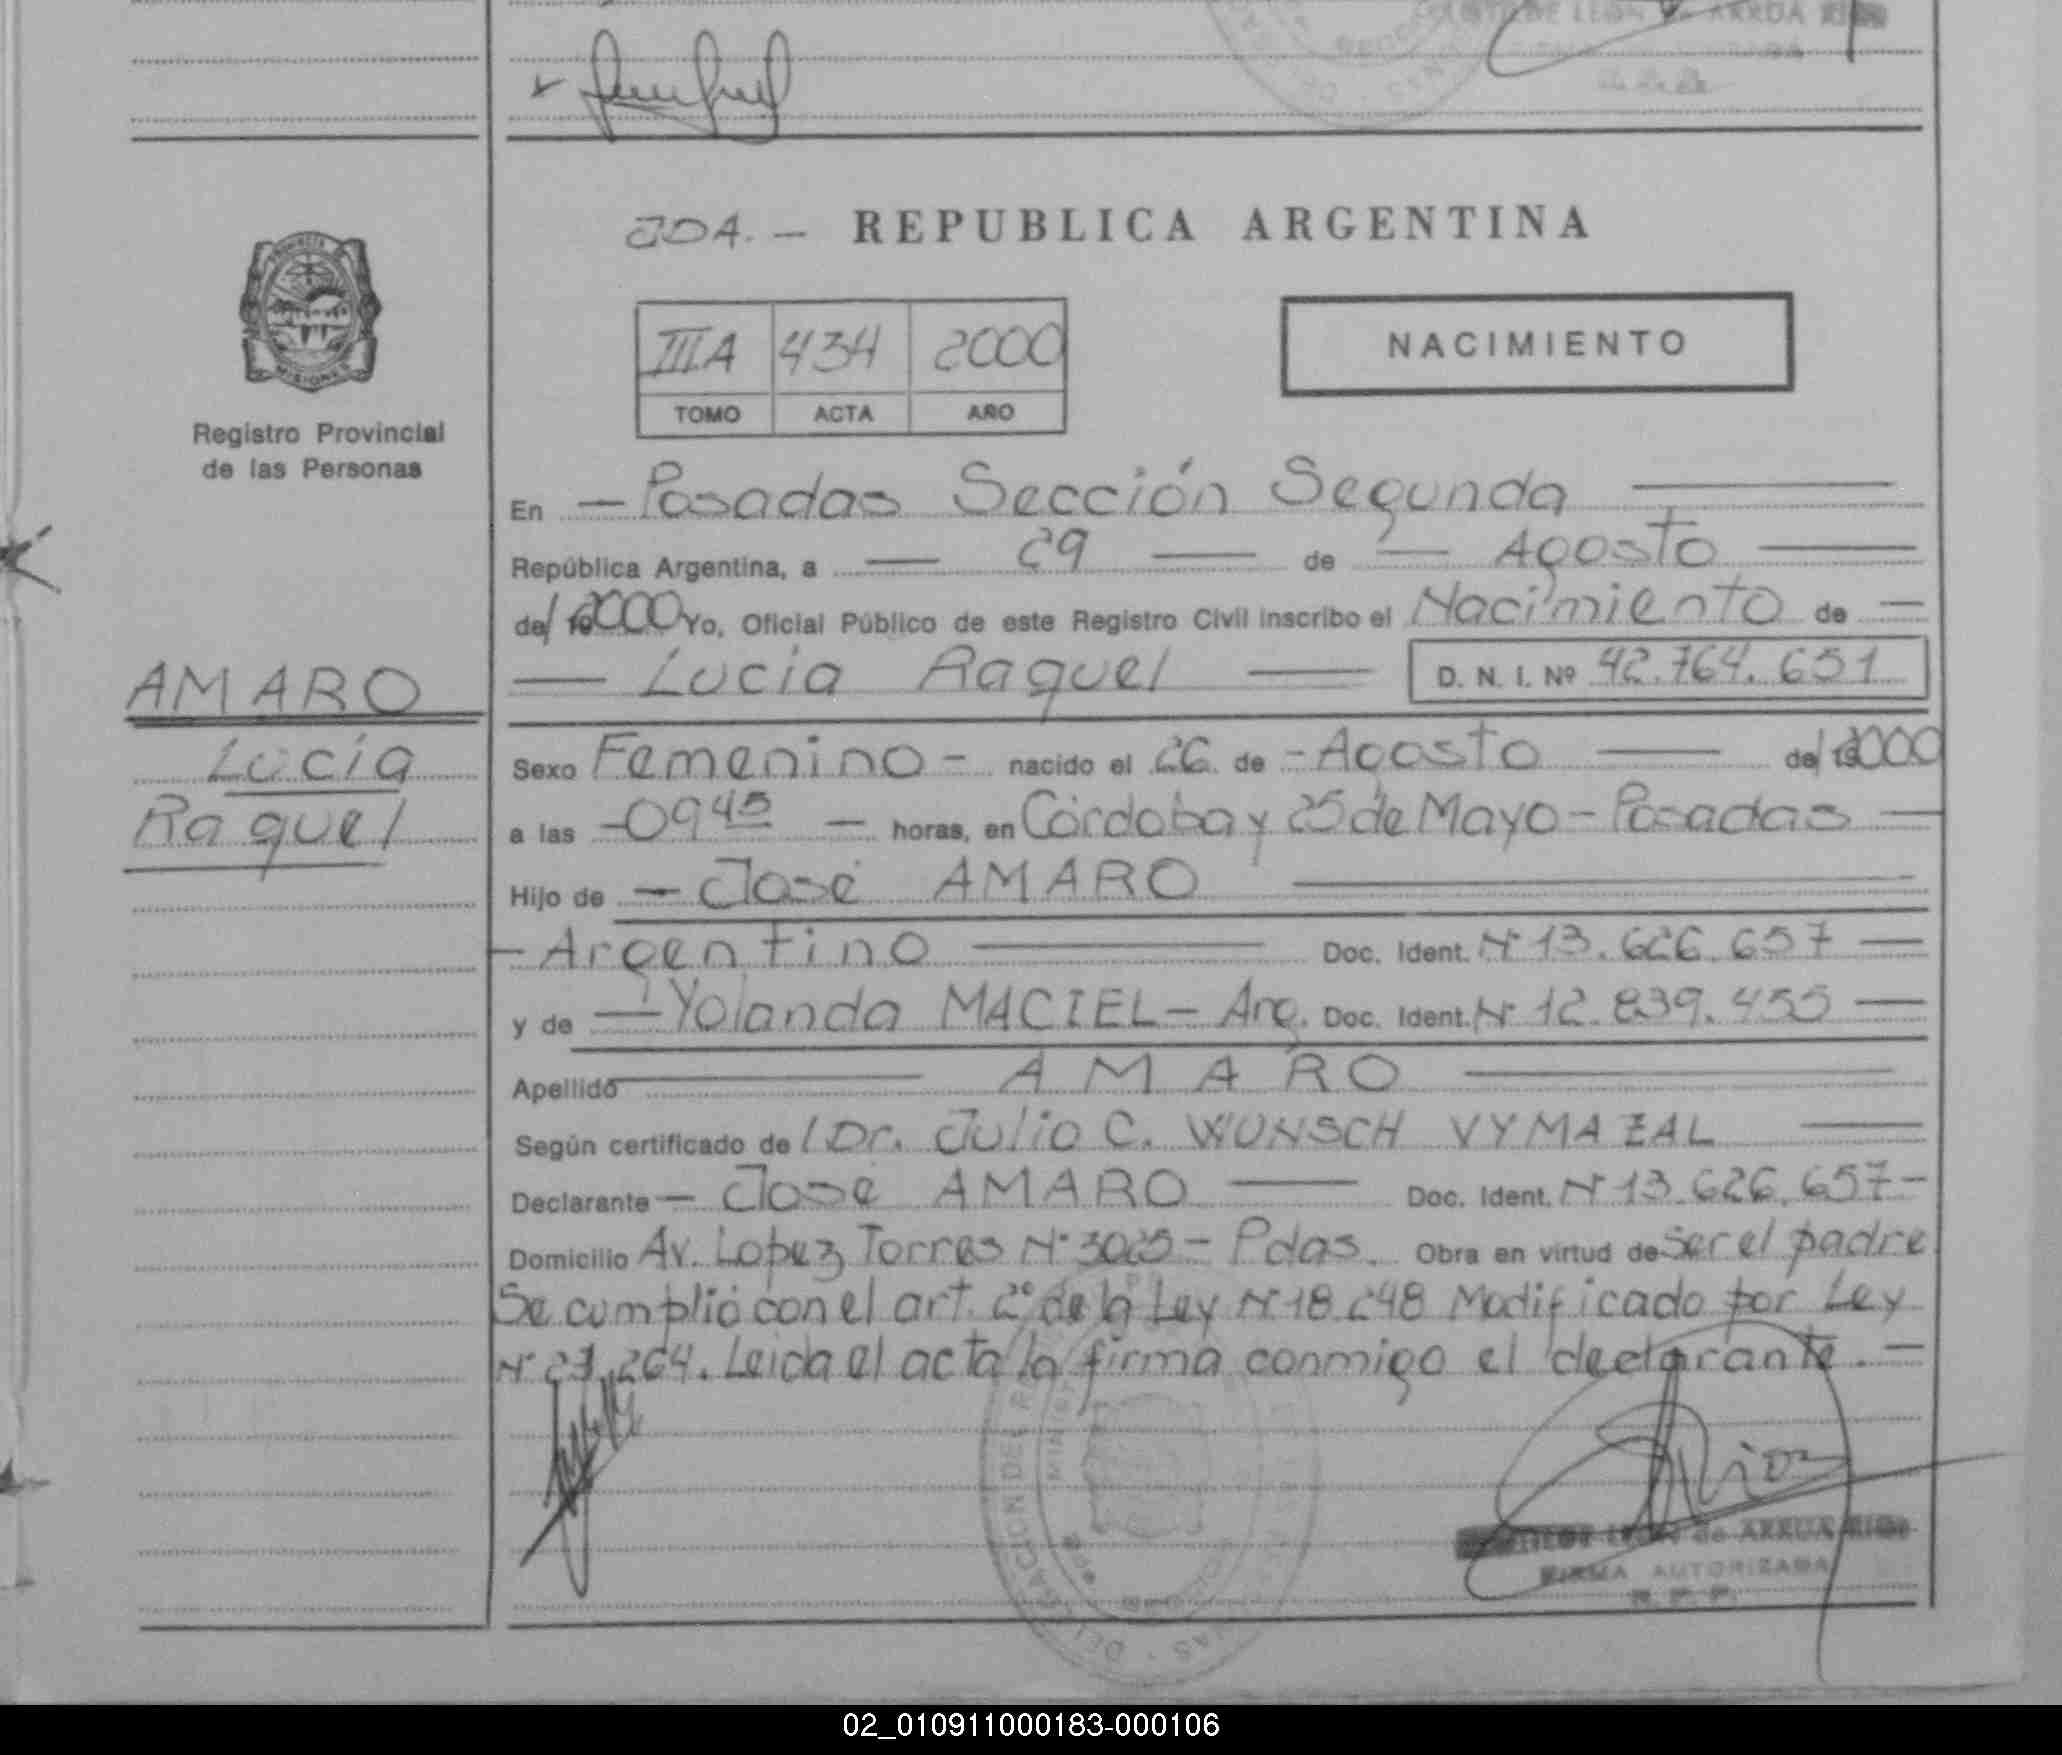 JDA. - REPUBLICA ARGENTINA
III.A 434 2000
TOMO ACTA AÑO
NACIMIENTO
MISIONES
Registro Provincial
de las Personas
En - Posadas Sección Segunda
República Argentina, a - 29 - de - Agosto
de/ 19 2000 Yo, Oficial Público de este Registro Civil inscribo el Nacimiento de -
- Lucia Raquel - D. N. I. Nº 42.764.651
AMARO
Lucia
Raquel
Sexo Femenino - nacido el 26 de - Agosto - de/ 19 2000
a las - 09 45 - horas, en Córdoba y 25 de Mayo - Posadas -
Hijo de - José AMARO
- Argentino - Doc. Ident. Nº 13.626.657 -
y de - Yolanda MACIEL - Arg. Doc. Ident. Nº 12.839.455 -
Apellido - AMARO -
Según certificado de / Dr. Julio C. WUNSCH VYMAZAL -
Declarante - José AMARO - Doc. Ident. Nº 13.626.657 -
Domicilio Av. Lopez Torres Nº 3025 - Pdas. Obra en virtud de ser el padre
Se cumplió con el art. 2º de la Ley Nº 18.248 Modificado por Ley
Nº 23.264. Leida el acta la firma conmigo el declarante. -
LEON de ARRUA RIOS
FIRMA AUTORIZADA
R. P. P.
02_010911000183-000106